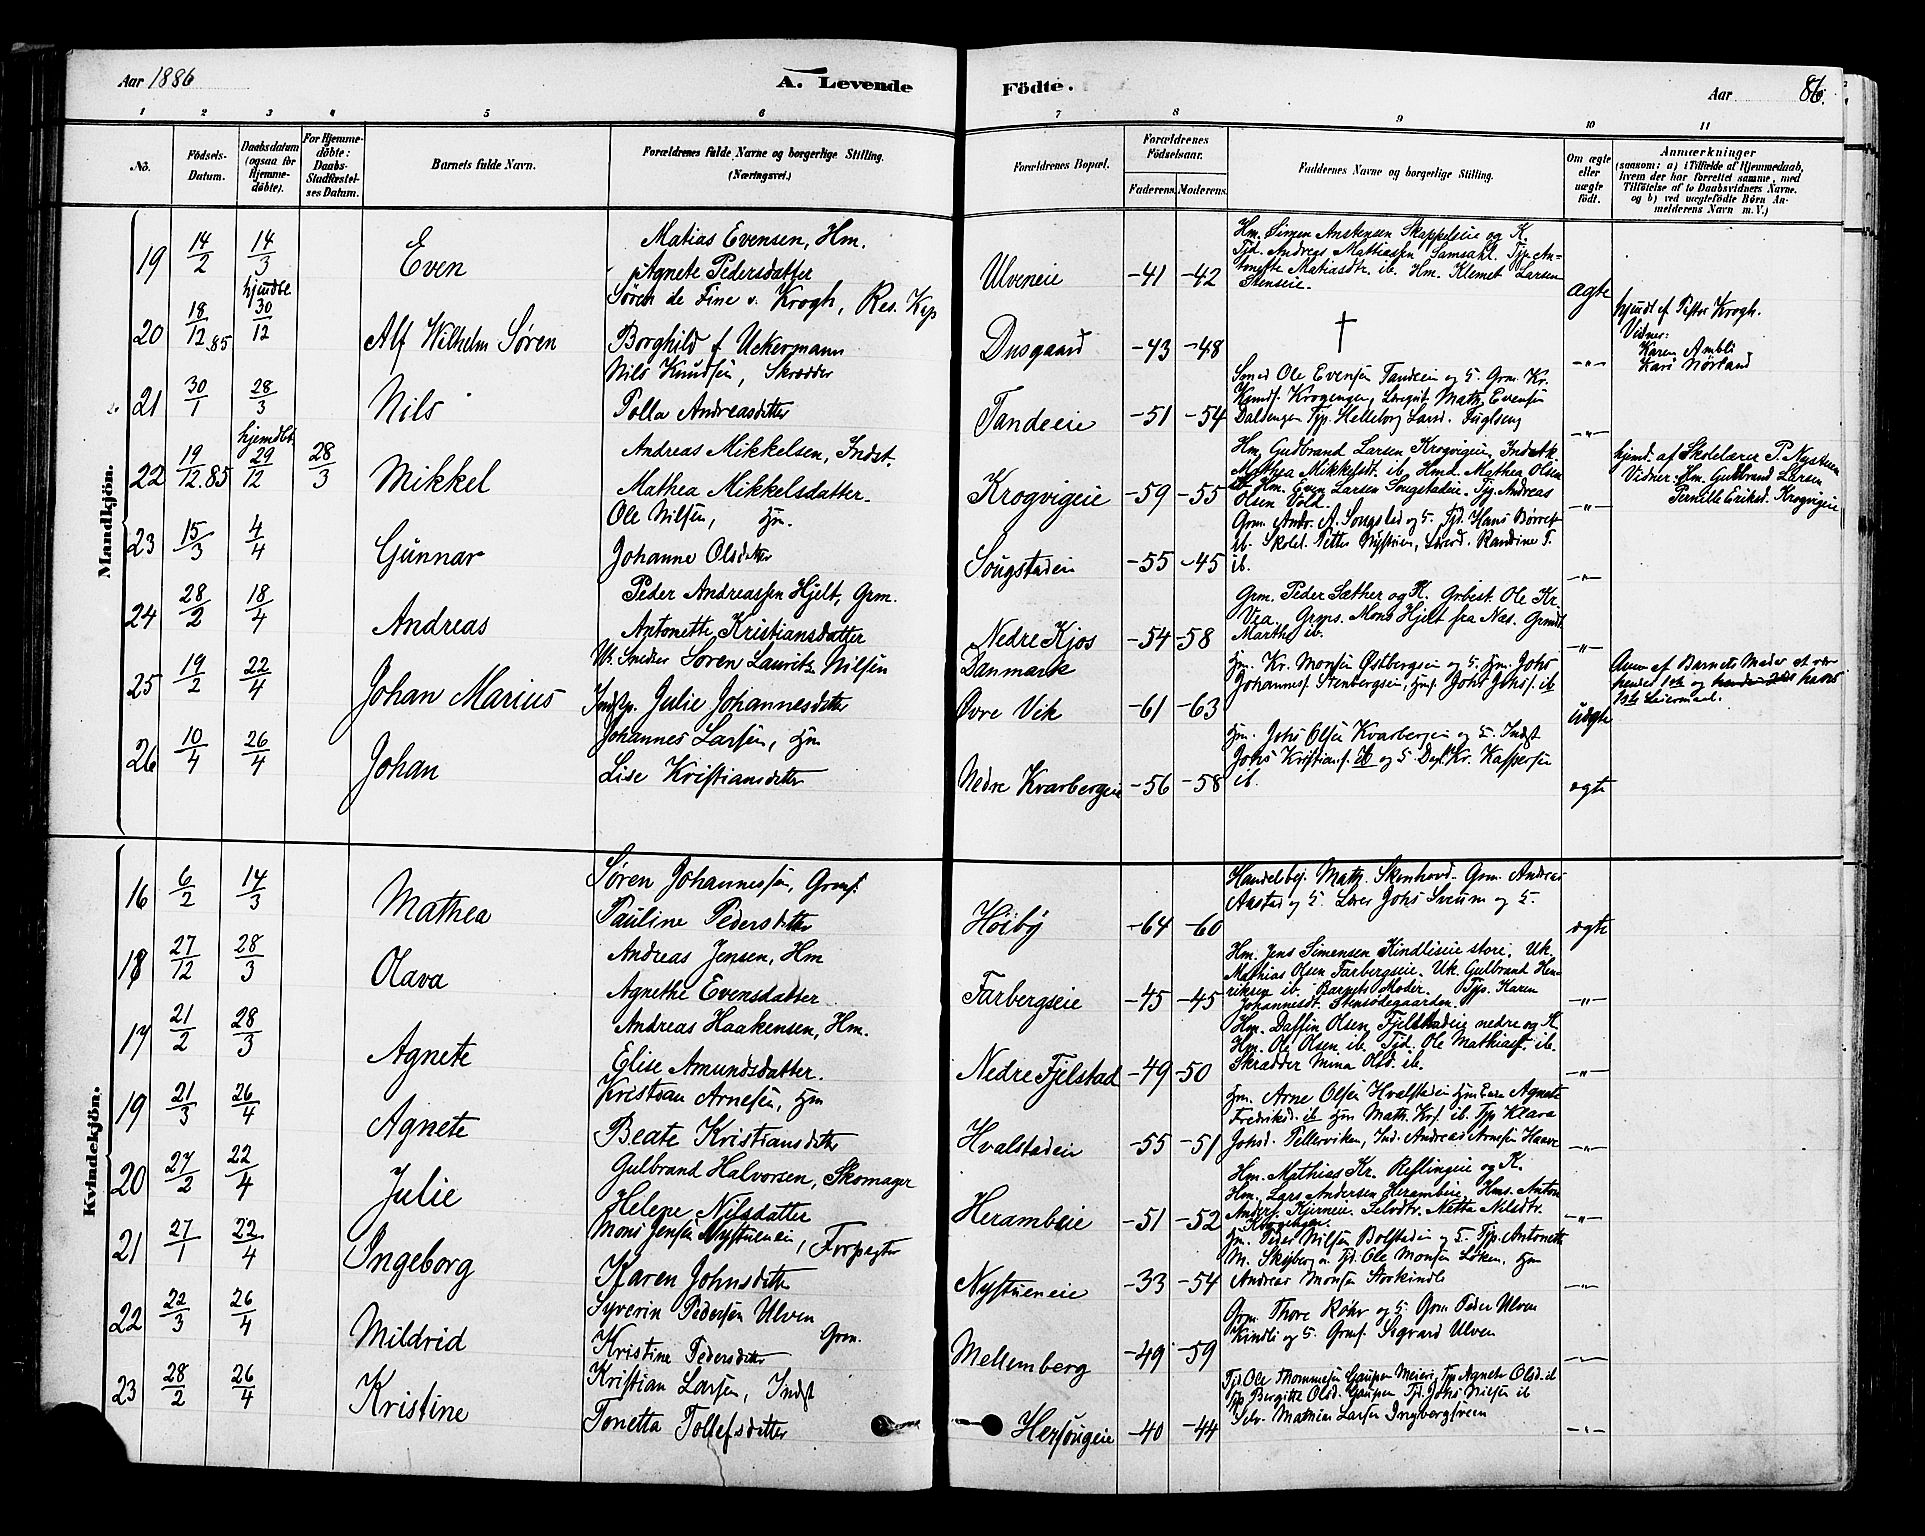 Aar 1886
A. Levende Födte.
Aar 86.
1 2 3 4 5 6 7 8 9 10 11
No.
Födsels-Datum.
Daabsdatum (ogsaa for Hjemmedöbte).
For Hjemmedöbte: Daabs-Stadfæstelses Datum.
Barnets fulde Navn.
Forældrenes fulde Navne og borgerlige Stilling. (Næringsvei.)
Forældrenes Bopæl.
Forældrenes Födselsaar.
Faderens. Moderens.
Faddernes Navne og borgerlige Stilling.
Om ægte eller uægte födt.
Anmærkninger
(saasom: a) i Tilfælde af Hjemmedaab, hvem der har forrettet samme, med Tilföielse af to Daabsvidners Navne. og b) ved uægtefödte Börn Anmelderens Navn m. V.)
Mandkjön.
19 14/2 14/3 Even
Matias Evensen, Hm.
Agnete Pedersdatter
Ulveneie -41 -42
Hm. Simen Anstensen Skappelseie og K.
Tjd. Andreas Mathiassen Samsahl. Tjp. An-
Matiasdtr. ib. Hm. Klemet Larsen
Stenseie.
ægte
20 18/12.85 hjmdbt 30/12 Alf Wilhelm Søren
Søren de Fine v. Krogh, Res. Kap
Borghild f. Uckermann
Dusgaard -43 -48
†
-"-
hjmdt af Pastor Krogh.
Vidner:
Karen Ambli
Kari Nørland
21 30/1 28/3 Nils
Nils Knudsen, Skrædder
Polla Andreasdatter
Tandeeie -51 -54
Smed Ole Evensen Tandeeie og K. Grm. Kr.
Krogengen, Math. Evensen
Dalsengen Tjp. Helleborg Larsd. Fuglseng
-"-
22 19/12.85 hjemdbt 29/12 28/3 Mikkel
Andreas Mikkelsen, Indst.
Mathea Mikkelsdatter
Krogvigeie -59 -55
Hm. Gudbrand Larsen Krogvigeie, Indstk.
Mathea Mikkelsdt. ib. Hmd. Mathea Olsen
ib. Hm. Even Larsen Sougstadeie. Tjg. Andreas
Olsen Vold.
-"-
hjmd. af Skolelærer P. Nystuen
Vidner: Hm. Gudbrand Larsen
Pernille Eriksd. Krogvigeie
23 15/3 4/4 Gunnar
Ole Nilsen, Hm.
Johanne Olsdatter
Sougstadeie -55 -45
Grm. Andr. A. Sougstad og K. Tjd. Hans Børres.
ib. Skolel. Petter Nystuen, Randine P.
ib.
-"-
24 28/2 18/4 Andreas
Peder Andreassen Hjelt, Grm.
Antonette Kristiansdatter
Nedre Kjos -54 -58
Grm. Peder Sæther og K. Grbest. Ole Kr.
Vea. Grms. Mons Hjelt fra Næs. Grmdt.
Marthe ib.
-"-
25 19/2 22/4 Johan Marius
Uk. Smeder Soren Lauritz Nilsen
Indstp. Julie Johannesdatter
Danmark
Øvre Vik -61 -63
Hm. Kr. Monsen Østbergseie og K. Hm. Johs
Johanness. Stenbergseie, Hmf. Johs Johs. ib
uægte
Anm. af Barnets Moder at være
hendes 1ste og hans
1ste Leiermaal.
26 10/4 26/4 Johan
Johannes Larsen, Hm
Lise Kristiansdatter
Nedre Kvarbergeie -56 -58
Hm. Johs Olsen Kvarbergeie og K. Indst
Johs Kristians. ib og K. Dagl. Kr. Kaspersen
ib.
ægte
Kvindekjön.
16 6/2 14/3 Mathea
Søren Johannessen, Grms.
Pauline Pedersdatter
Høiby -64 -60
Handelsbej. Math. Skonhovd. Grm. Andreas
Aastad og K. Lærer Johs Sveum og K.
ægte
18 27/12 28/3 Olava
Andreas Jensen, Hm
Agnethe Evensdatter
Farbergseie -45 -45
Hm. Jens Simensen Kindliseie store. Uk.
Mathias Olsen Farbergseie. Uk. Gulbrand Hen-
riksen ib. Barnets Moder. Tjp. Karen
Johannesdt. Stensødegaarden.
-"-
17 21/2 28/3 Agnete
Andreas Haakensen, Hm.
Elise Amundsdatter.
Nedre Fjelstad -49 -50
Hm. Daffin Olsen Fjelstadeie nedre og K.
Hm. Ole Olsen ib. Tjd. Ole Mathiass. ib.
Skrædder Mina Olsd. ib.
-"-
19 21/3 26/4 Agnete
Kristian Arnesen, Hm
Beate Kristiansdatter
Hvalstadeie -55 -51
Hm. Arne Olsen Hvalstadeie Agnete
Fredriksd. ib Hm Math. Krs. ib. Tjp Klara
Johsd. Pellerviken, Ind. Andreas Arnesen Haave
-"-
20 27/2 22/4 Julie
Gulbrand Halvorsen, Skomager
Helene Nilsdatter
Herambeie -51 -52
Hm. Mathias Kr. Reslingeie og K.
Hm. Lars Andersen Herambeie, Hms. Anton
Anders. Kjerneie. Selvdtr. Netta Nilsdtr.
Krogengen
-"-
21 27/1 22/4 Ingeborg
Mons Jensen Nystueneie, Forpagter
Karen Johnsdatter
Nystueneie -33 -54
Hm. Peder Nilsen Bolstadeie og K. Tjp. Antonette
M. Skyberg. Tjd. Ole Monsen Løken. Hm
Andreas Monsen Storkindli
-"-
22 22/3 26/4 Mildrid
Syverin Pedersen Ulven Grm.
Kristine Pedersdatter
Mellemberg -49 -59
Grm. Thore Røhr og K. Grm Peder Ulven
Kindli og K. Grmf. Sigvard Ulven
-"-
23 28/2 26/4 Kristine
Kristian Larsen, Indst
Tonetta Tollefsdatter
Hersougeie -40 -44
Tjd Ole Thommesen Gaupen Meieri, Tjp Agnete Olsd. ib
Tjp Bergitte Olsd. Gaupen Tjd. Johs Nilsen ib
Selv. Mathias Larsen Ingebergsveen
-"-